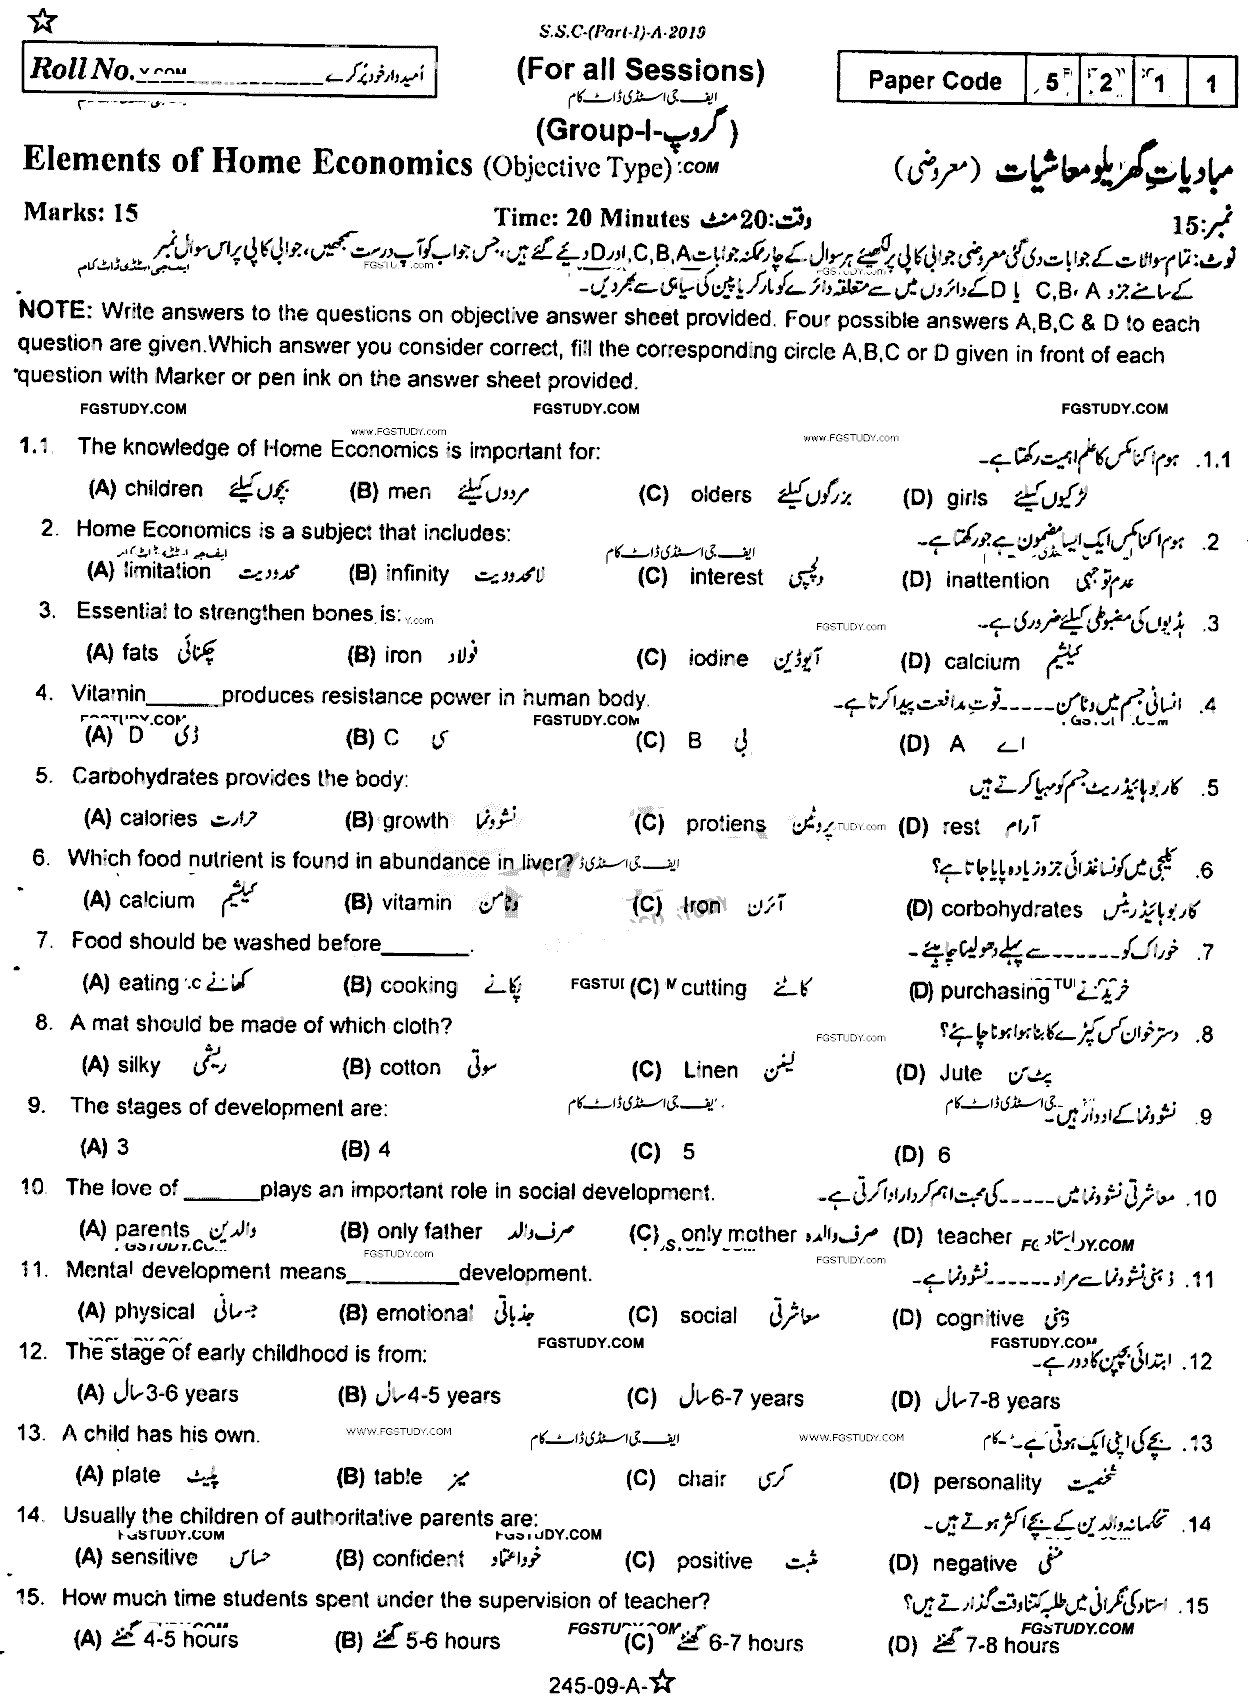 S.S.C-(Part-I)-A-2019
Roll No. امیدوار خود پُر کرے
(For all Sessions)
Paper Code 5 2 1 1
ایف جی اسٹڈی ڈاٹ کام
(Group-I-گروپ)
Elements of Home Economics (Objective Type) مبادیاتِ گھریلو معاشیات (معروضی)
Marks: 15 Time: 20 Minutes وقت:20 منٹ نمبر:15
نوٹ: تمام سوالات کے جوابات دی گئی معروضی جوابی کاپی پر لکھئے ہر سوال کے چار ممکنہ جوابات C,B,A اور D دیئے گئے ہیں، جس جواب کو آپ درست سمجھیں، جوابی کاپی پر اس سوال نمبر
کے سامنے جزو C,B,A یا D کے دائروں میں سے متعلقہ دائرے کو مارکر یا پین کی سیاہی سے بھر دیں۔
NOTE: Write answers to the questions on objective answer sheet provided. Four possible answers A,B,C & D to each
question are given.Which answer you consider correct, fill the corresponding circle A,B,C or D given in front of each
question with Marker or pen ink on the answer sheet provided.
FGSTUDY.COM FGSTUDY.COM FGSTUDY.COM
www.FGSTUDY.com www.FGSTUDY.com
1.1 The knowledge of Home Economics is important for: ہوم اکنامکس کا علم اہمیت رکھتا ہے۔ .1.1
(A) children بچوں کیلئے (B) men مردوں کیلئے (C) olders بزرگوں کیلئے (D) girls لڑکیوں کیلئے
2. Home Economics is a subject that includes: ہوم اکنامکس ایک ایسا مضمون ہے جو رکھتا ہے۔ .2
ایف جی اسٹڈی ڈاٹ کام
(A) limitation محدودیت (B) infinity لامحدودیت (C) interest دلچسپی (D) inattention عدم توجہی
3. Essential to strengthen bones is: ہڈیوں کی مضبوطی کیلئے ضروری ہے۔ .3
FGSTUDY.com
(A) fats چکنائی (B) iron فولاد (C) iodine آیوڈین (D) calcium کیلشیم
4. Vitamin______produces resistance power in human body. انسانی جسم میں وٹامن-----قوتِ مدافعت پیدا کرتا ہے۔ .4
FGSTUDY.COM
(A) D ڈی (B) C سی (C) B بی (D) A اے
5. Carbohydrates provides the body: کاربوہائیڈریٹ جسم کو مہیا کرتے ہیں .5
(A) calories حرارت (B) growth نشوونما (C) protiens پروٹین (D) rest آرام
6. Which food nutrient is found in abundance in liver? کلیجی میں کونسا غذائی جزو زیادہ پایا جاتا ہے؟ .6
(A) calcium کیلشیم (B) vitamin وٹامن (C) Iron آئرن (D) corbohydrates کاربوہائیڈریٹس
7. Food should be washed before_______. خوراک کو-------سے پہلے دھو لینا چاہیئے۔ .7
(A) eating کھانے (B) cooking پکانے (C) cutting کاٹنے (D) purchasing خریدنے
8. A mat should be made of which cloth? دسترخوان کس کپڑے کا بنا ہوا ہونا چاہئے؟ .8
FGSTUDY.com
(A) silky ریشمی (B) cotton سوتی (C) Linen لینن (D) Jute پٹ سن
9. The stages of development are: نشوونما کے ادوار ہیں۔ .9
(A) 3 (B) 4 (C) 5 (D) 6
10. The love of ______plays an important role in social development. معاشرتی نشوونما میں-----کی محبت اہم کردار ادا کرتی ہے۔ .10
(A) parents والدین (B) only father صرف والد (C) only mother صرف والدہ (D) teacher استاد
FGSTUDY.com FGSTUDY.com
11. Mental development means_________development. ذہنی نشوونما سے مراد------نشوونما ہے۔ .11
(A) physical جسمانی (B) emotional جذباتی (C) social معاشرتی (D) cognitive ذہنی
FGSTUDY.COM FGSTUDY.COM
12. The stage of early childhood is from: ابتدائی بچپن کا دور ہے۔ .12
(A) سال 3-6 years (B) سال 4-5 years (C) سال 6-7 years (D) سال 7-8 years
13. A child has his own. بچے کی اپنی ایک ہوتی ہے۔ .13
WWW.FGSTUDY.COM ایف جی اسٹڈی ڈاٹ کام WWW.FGSTUDY.COM
(A) plate پلیٹ (B) table میز (C) chair کرسی (D) personality شخصیت
14. Usually the children of authoritative parents are: تحکمانہ والدین کے بچے اکثر ہوتے ہیں۔ .14
FGSTUDY.COM FGSTUDY.COM
(A) sensitive حساس (B) confident خود اعتماد (C) positive مثبت (D) negative منفی
15. How much time students spent under the supervision of teacher? استاد کی نگرانی میں طلبہ کتنا وقت گذارتے ہیں؟ .15
FGSTUDY.COM
(A) گھنٹے 4-5 hours (B) گھنٹے 5-6 hours (C) گھنٹے 6-7 hours (D) گھنٹے 7-8 hours
245-09-A-☆